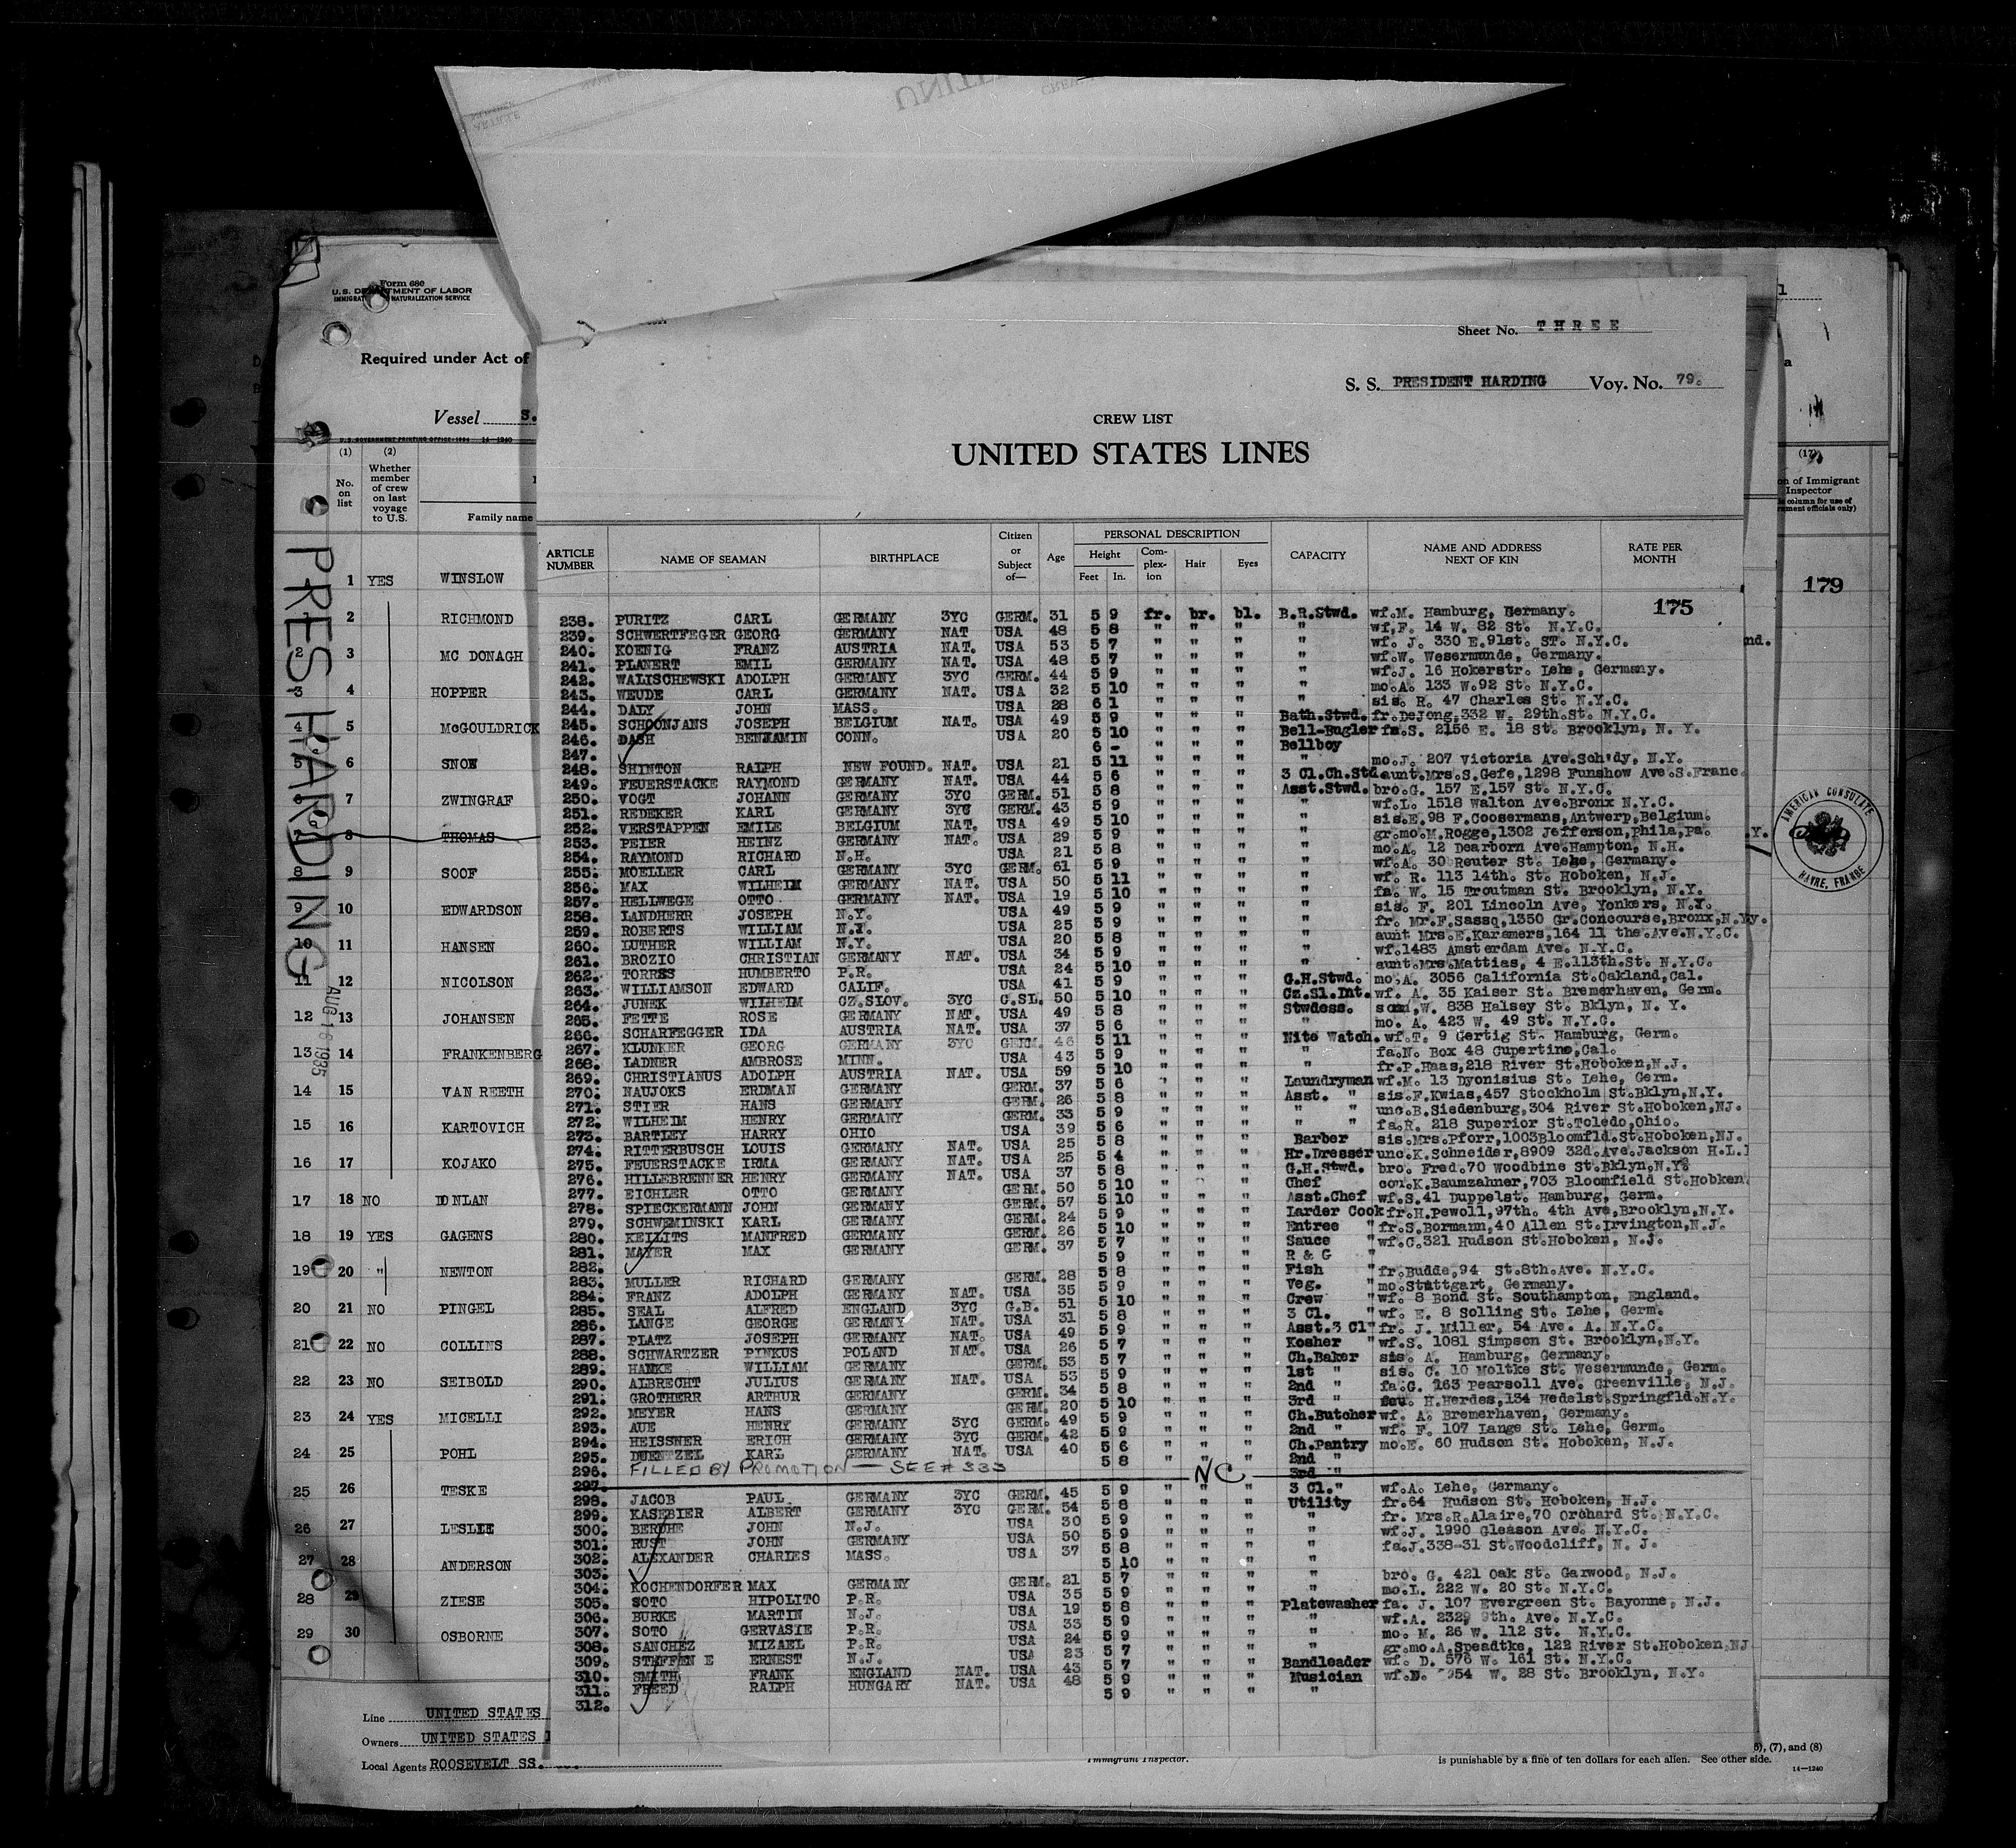 Form 680
U.S. DEPARTMENT OF LABOR
IMMIGRATION NATURALIZATION SERVICE
Required under Act of
Vessel S.
U.S. GOVERNMENT PRINTING OFFICE: 1934 14-1240
(1) (2)
No. on list
Whether member of crew on last voyage to U.S.
Family name
1 YES WINSLOW
2 RICHMOND
2 3 MC DONAGH
3 4 HOPPER
4 5 McGOULDRICK
5 6 SNOW
6 7 ZWINGRAF
7 8 THOMAS
8 9 SOOF
9 10 EDWARDSON
10 11 HANSEN
11 12 NICOLSON
12 13 JOHANSEN
13 14 FRANKENBERG
14 15 VAN REETH
15 16 KARTOVICH
16 17 KOJAKO
17 18 NO DONLAN
18 19 YES GAGENS
19 20 " NEWTON
20 21 NO PINGEL
21 22 NO COLLINS
22 23 NO SEIBOLD
23 24 YES MICELLI
24 25 POHL
25 26 TESKE
26 27 LESLIE
27 28 ANDERSON
28 29 ZIESE
29 30 OSBORNE
Line UNITED STATES
Owners UNITED STATES
Local Agents ROOSEVELT SS.
PRES HARDING
AUG 16 1935
Sheet No. THREE
S. S. PRESIDENT HARDING Voy. No. 79.
CREW LIST
UNITED STATES LINES
ARTICLE NUMBER NAME OF SEAMAN BIRTHPLACE Citizen or Subject of— Age PERSONAL DESCRIPTION Height Feet In. Complexion Hair Eyes CAPACITY NAME AND ADDRESS NEXT OF KIN RATE PER MONTH
175
238. PURITZ CARL GERMANY 3YC GERM. 31 5 9 fr. br. bl. B.R.Stwd. wf.M. Hamburg, Germany.
239. SCHWERTFEGER GEORG GERMANY NAT USA 48 5 8 " " " " wf.F. 14 W. 82 St. N.Y.C.
240. KOENIG FRANZ AUSTRIA NAT. USA 53 5 7 " " " " wf. J. 330 E.91st. ST. N.Y.C.
241. PLANERT EMIL GERMANY NAT. USA 48 5 7 " " " " wf.W. Wesermunde, Germany.
242. WALISCHEWSKI ADOLPH GERMANY 3YC GERM. 44 5 9 " " " " wf.J. 16 Hokerstr. Lehe, Germany.
243. WEUDE CARL GERMANY NAT. USA 32 5 10 " " " " mo.A. 133 W.92 St. N.Y.C.
244. DALY JOHN MASS. USA 28 6 1 " " " " sis. R. 47 Charles St. N.Y.C.
245. SCHOONJANS JOSEPH BELGIUM NAT. USA 49 5 9 " " " Bath.Stwd. fr.DeJong,332 W. 29th.St. N.Y.C.
246. DASH BENJAMIN CONN. USA 20 5 10 " " " Bell-Bugler fa.S. 2156 E. 18 St. Brooklyn, N. Y.
247. 6 - " " " Bellboy
248. SHINTON RALPH NEW FOUND. NAT. USA 21 5 11 " " " " mo.J. 207 Victoria Ave.Sch'dy, N.Y.
249. FEUERSTACKE RAYMOND GERMANY NAT. USA 44 5 6 " " " 3 Cl.Ch.Std. aunt.Mrs.S.Gefe,1298 Funshow Ave.S.Franc.
250. VOGT JOHANN GERMANY 3YC GERM. 51 5 8 " " " Asst.Stwd. bro.G. 157 E.157 St. N.Y.C.
251. REDEKER KARL GERMANY 3YC GERM. 43 5 9 " " " " wf.L. 1518 Walton Ave.Bronx N.Y.C.
252. VERSTAPPEN EMILE BELGIUM NAT. USA 49 5 10 " " " " sis.E.98 F.Coosermans,Antwerp,Belgium.
253. PEIER HEINZ GERMANY NAT. USA 29 5 9 " " " " gr.mo.M.Rogge,1302 Jefferson,Phila,Pa.
254. RAYMOND RICHARD N.H. USA 21 5 8 " " " " mo.A. 12 Dearborn Ave.Hampton, N.H.
255. MOELLER CARL GERMANY 3YC GERM. 61 5 9 " " " " wf.A. 30 Reuter St. Lehe, Germany.
256. MAX WILHEIM GERMANY NAT. USA 50 5 11 " " " " wf. R. 113 14th. St. Hoboken, N.J.
257. HELLWEGE OTTO GERMANY NAT. USA 19 5 10 " " " " fa. W. 15 Troutman St. Brooklyn, N.Y.
258. LANDHERR JOSEPH N.Y. USA 49 5 9 " " " " sis. F. 201 Lincoln Ave, Yonkers, N.Y.
259. ROBERTS WILLIAM N.Y. USA 25 5 9 " " " " fr. Mr.F.Sasso,1350 Gr.Concourse,Bronx,N.Y.
260. LUTHER WILLIAM N.Y. USA 20 5 8 " " " " aunt Mrs.E.Karamers,164 11 the.Ave.N.Y.C.
261. BROZIO CHRISTIAN GERMANY NAT. USA 34 5 9 " " " " wf.1483 Amsterdam Ave. N.Y.C.
262. TORRES HUMBERTO P.R. USA 24 5 10 " " " " aunt.Mrs.Mattias, 4 E.113th.St. N.Y.C.
263. WILLIAMSON EDWARD CALIF. USA 41 5 9 " " " G.H.Stwd. mo.A. 3056 California St.Oakland,Cal.
264. JUNEK WILHEIM CZ.SLOV. 3YC C.SL. 50 5 10 " " " Cz.Sl.Int. wf. A. 35 Kaiser St. Bremerhaven, Germ.
265. FETTE ROSE GERMANY NAT. USA 49 5 8 " " " Stwdess. son,W. 838 Halsey St. Bklyn, N. Y.
266. SCHARFEGGER IDA AUSTRIA NAT. USA 37 5 6 " " " " mo. A. 423 W. 49 St. N.Y.C.
267. KLUNKER GEORG GERMANY 3YC GERM. 46 5 11 " " " Nite Watch. wf.T. 9 Gertig St. Hamburg, Germ.
268. LADNER AMBROSE MINN. USA 43 5 9 " " " " fa.N. Box 48 Cupertino,Cal.
269. CHRISTIANUS ADOLPH AUSTRIA NAT. USA 59 5 10 " " " " fr.P.Haas,218 River St.Hoboken,N.J.
270. NAUJOKS ERDMAN GERMANY GERM. 37 5 6 " " " Laundryman wf.M. 13 Dyonisius St. Lehe, Germ.
271. STIER HANS GERMANY GERM. 26 5 8 " " " Asst. " sis.F.Kwias,457 Stockholm St.Bklyn,N.Y.
272. WILHEIM HENRY GERMANY GERM. 33 5 9 " " " " " unc.B.Siedenburg,304 River St.Hoboken,NJ.
273. BARTLEY HARRY OHIO USA 39 5 6 " " " " " fa.R. 218 Superior St.Toledo,Ohio.
274. RITTERBUSCH LOUIS GERMANY NAT. USA 25 5 8 " " " Barber sis.Mrs.Pforr,1003Bloomfld.St.Hoboken,NJ.
275. FEUERSTACKE IRMA GERMANY NAT. USA 25 5 4 " " " Hr.Dresser unc.K.Schneider,8909 32d.Ave.Jackson H.L.I
276. HILLEBRENNER HENRY GERMANY NAT. USA 37 5 8 " " " G.H.Stwd. bro. Fred.70 Woodbine St.Bklyn,N.Y.
277. EICHLER OTTO GERMANY GERM. 50 5 10 " " " Chef cou.K.Baumzahner,703 Bloomfield St.Hobken
278. SPIECKERMANN JOHN GERMANY GERM. 57 5 10 " " " Asst.Chef wf.S.41 Duppelst. Hamburg, Germ.
279. SCHWEMINSKI KARL GERMANY GERM. 24 5 9 " " " Larder Cook fr.H.Pewoll,97th. 4th Ave,Brooklyn,N.Y.
280. KEILITS MANFRED GERMANY GERM. 26 5 10 " " " Entree " fr.S.Bormann,40 Allen St.Irvington,N.J.
281. MAYER MAX GERMANY GERM. 37 5 7 " " " Sauce " wf.C.321 Hudson St.Hoboken, N.J.
282. 5 9 " " " R & G "
283. MULLER RICHARD GERMANY GERM. 28 5 8 " " " Fish " fr.Budde,94 St.8th.Ave. N.Y.C.
284. FRANZ ADOLPH GERMANY NAT. USA 35 5 9 " " " Veg. " mo.Stattgart, Germany.
285. SEAL ALFRED ENGLAND 3YC G.B. 51 5 10 " " " Crew " wf. 8 Bond St. Southampton, England.
286. LANGE GEORGE GERMANY NAT. USA 31 5 8 " " " 3 Cl. " wf. E. 8 Solling St. Lehe, Germ.
287. PLATZ JOSEPH GERMANY NAT. USA 49 5 9 " " " Asst.3 Cl" fr. J. Miller, 54 Ave. A. N.Y.C.
288. SCHWARTZER PINKUS POLAND NAT. USA 26 5 7 " " " Kosher " wf.S. 1081 Simpson St. Brooklyn,N.Y.
289. HANKE WILLIAM GERMANY GERM. 53 5 7 " " " Ch.Baker sis. A. Hamburg, Germany.
290. ALBRECHT JULIUS GERMANY NAT. USA 53 5 9 " " " 1st " sis. C. 10 Moltke St. Wesermunde, Germ.
291. GROTHERR ARTHUR GERMANY GERM. 34 5 8 " " " 2nd " fa.G. 163 Pearsoll Ave. Greenville, N.J.
292. MEYER HANS GERMANY GERM. 20 5 10 " " " 3rd " H.Herdes,134 Hedelst.Springfld.N.Y.
293. AUE HENRY GERMANY 3YC GERM. 49 5 9 " " " Ch.Butcher wf. A. Bremerhaven, Germany.
294. HEISSNER ERICH GERMANY 3YC GERM. 42 5 9 " " " 2nd " wf. F. 107 Lange St. Lehe, Germ.
295. DUENTZEL KARL GERMANY NAT. USA 40 5 6 " " " Ch.Pantry mo.E. 60 Hudson St. Hoboken, N.J.
296. FILLED BY PROMOTION — SEE # 333 5 8 " " " 2nd "
297. NC 3rd "
298. JACOB PAUL GERMANY 3YC GERM. 45 5 9 " " " 3 Cl." wf.A. Lehe, Germany.
299. KASEBIER ALBERT GERMANY 3YC GERM. 54 5 8 " " " Utility fr.64 Hudson St. Hoboken, N.J.
300. BERUHE JOHN N.J. USA 30 5 9 " " " " fr. Mrs.R.Alaire,70 Orchard St. N.Y.C.
301. RUST JOHN GERMANY USA 50 5 9 " " " " wf.J. 1990 Gleason Ave. N.Y.C.
302. ALEXANDER CHARLES MASS. USA 37 5 8 " " " " fa.J.338-31 St.Woodcliff, N. J.
303. 5 10 " " " "
304. KOCHENDORFER MAX GERMANY GERM. 21 5 7 " " " " bro. G. 421 Oak St. Garwood, N.J.
305. SOTO HIPOLITO P.R. USA 35 5 9 " " " " mo.L. 222 W. 20 St. N.Y.C.
306. BURKE MARTIN N.J. USA 19 5 8 " " " Platewasher fa. J. 107 Evergreen St. Bayonne, N.J.
307. SOTO GERVASIE P.R. USA 33 5 9 " " " " wf.A. 2329 9th. Ave. N.Y.C.
308. SANCHEZ MIZAEL P.R. USA 24 5 9 " " " " mo. M. 26 W. 112 St. N.Y.C.
309. STEFFEN E ERNEST N.J. USA 23 5 7 " " " " gr.mo.A.Speadtke, 122 River St.Hoboken,NJ
310. SMITH FRANK ENGLAND NAT. USA 43 5 7 " " " Bandleader wf. D. 576 W. 161 St. N.Y.C.
311. FREED RALPH HUNGARY NAT. USA 48 5 9 " " " Musician 954 W. 28 St. Brooklyn, N.Y.
312. 5 9 " " " "
Immigrant Inspector.
(17)
on of Immigrant
Inspector
column for use of
ment officials only)
179
nd.
AMERICAN CONSULATE
HAVRE, FRANCE
.Y.
5), (7), and (8)
is punishable by a fine of ten dollars for each alien. See other side.
14-1240